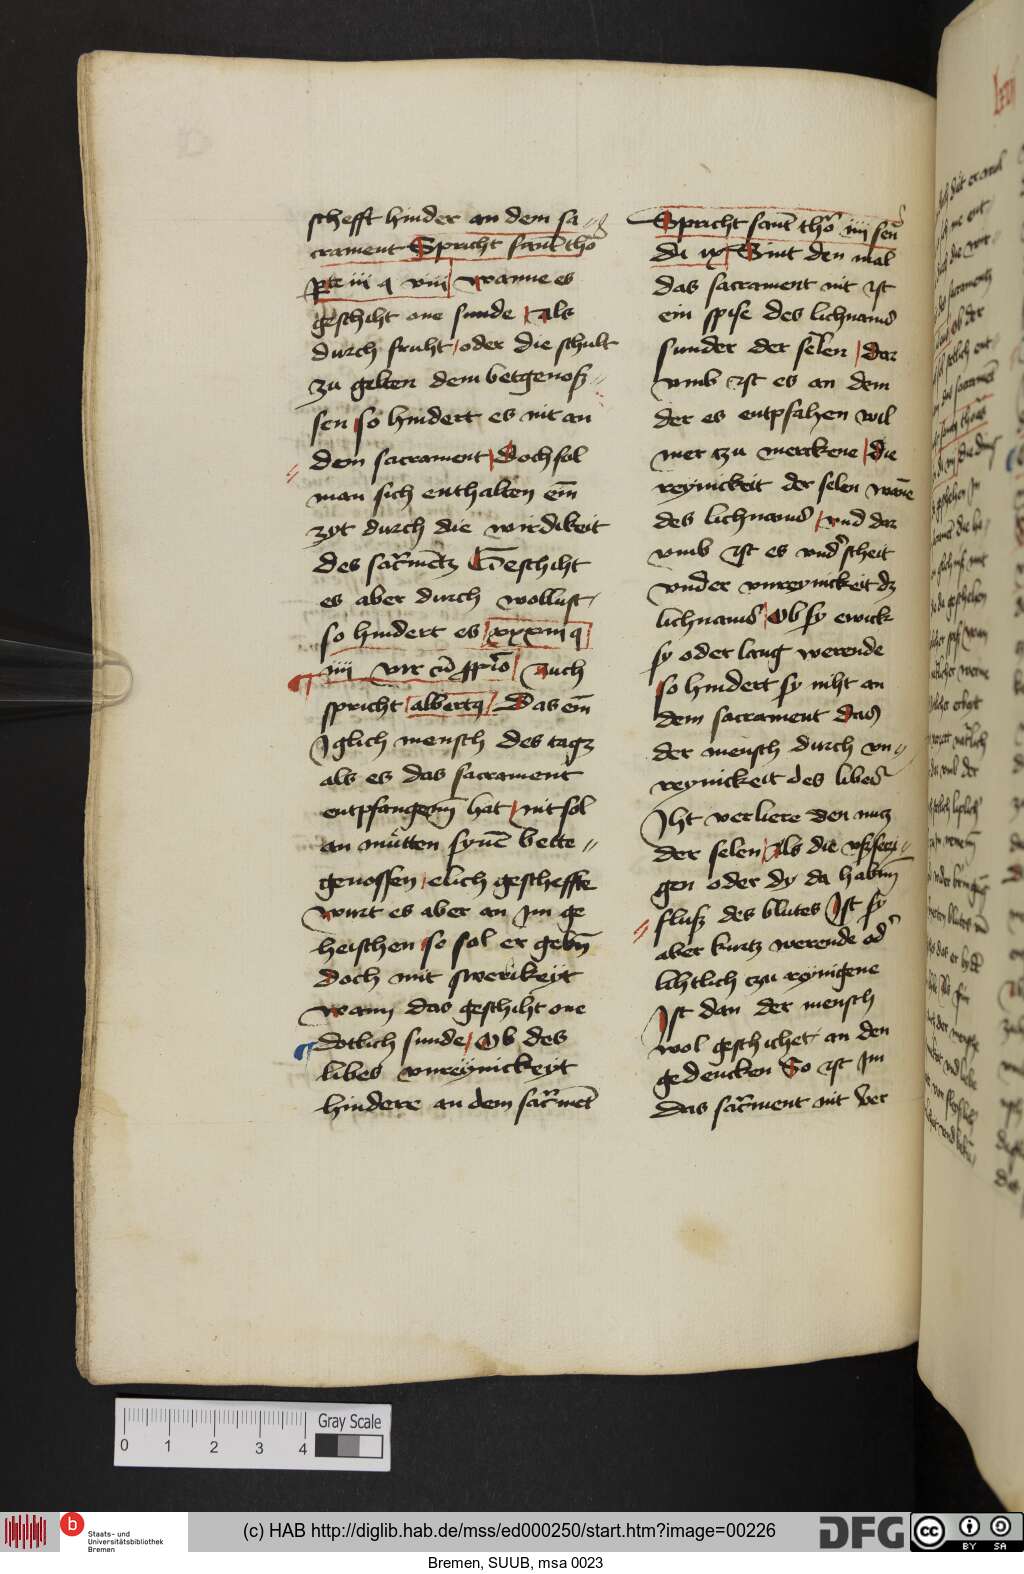 schefft hinder an dem sa//
crament Spricht sant tho
pte iii q viii wanne es
geschiht one sunde / Als
durch fruht / oder die schult
zu gelten dem betgenosz//
sen / so hindert es nit an
dem sacrament / Doch sol
man sich enthalten ein̄
zyt durch die wirdikeit
des sacr̄mentz Geschiht
es aber durch wollust
so hindert es / xxxiii q
iiii vir cū ꝓprio / Auch
spricht / albertꝰ / Das ein̄
Iglich mensch des tagz
als es das sacrament
entpfangenn̄ hat / nit sol
an mütten synē bette//
genossen / elich gescheffte
wurt es aber an im ge
heischen / so sol er gebn̄
doch mit swerikeyt
wann das geschiht one
dotlich sunde / Ob des
libes vnreynickeyt
hindere an dem sacr̄ment
Spricht sant tho iiii sen
di ix / Sint den mal
das sacrament nit ist
ein spise des lichnams
sunder der selen / Dar
vmb ist es an dem
der es entpfahen wil
mer czu merckene / die
reynickeit der selen wāne
des lichnams / vnd dar
vmb ist es vnd'scheit
vnder vnreynickeit dz
lichnams / Ob sy ewick
sy oder lang werende
so hindert sy niht an
dem sacrament das
der mensch durch vn//
reynickeit des libes
Iht verliere den nutz
der selen / Als die vszseczi//
gen oder dy da habenn̄
flusz des blutes Ist sy
aber kurtz werende od'
lihtlich czu reynigene
Ist dan der mensch
wol geschicket an den
gedencken So ist im
das sacr̄ment nit ver
0 1 2 3 4
Gray Scale
Staats- und
Universitätsbibliothek
Bremen
(c) HAB http://diglib.hab.de/mss/ed000250/start.htm?image=00226
DFG
cc BY SA
Bremen, SUUB, msa 0023